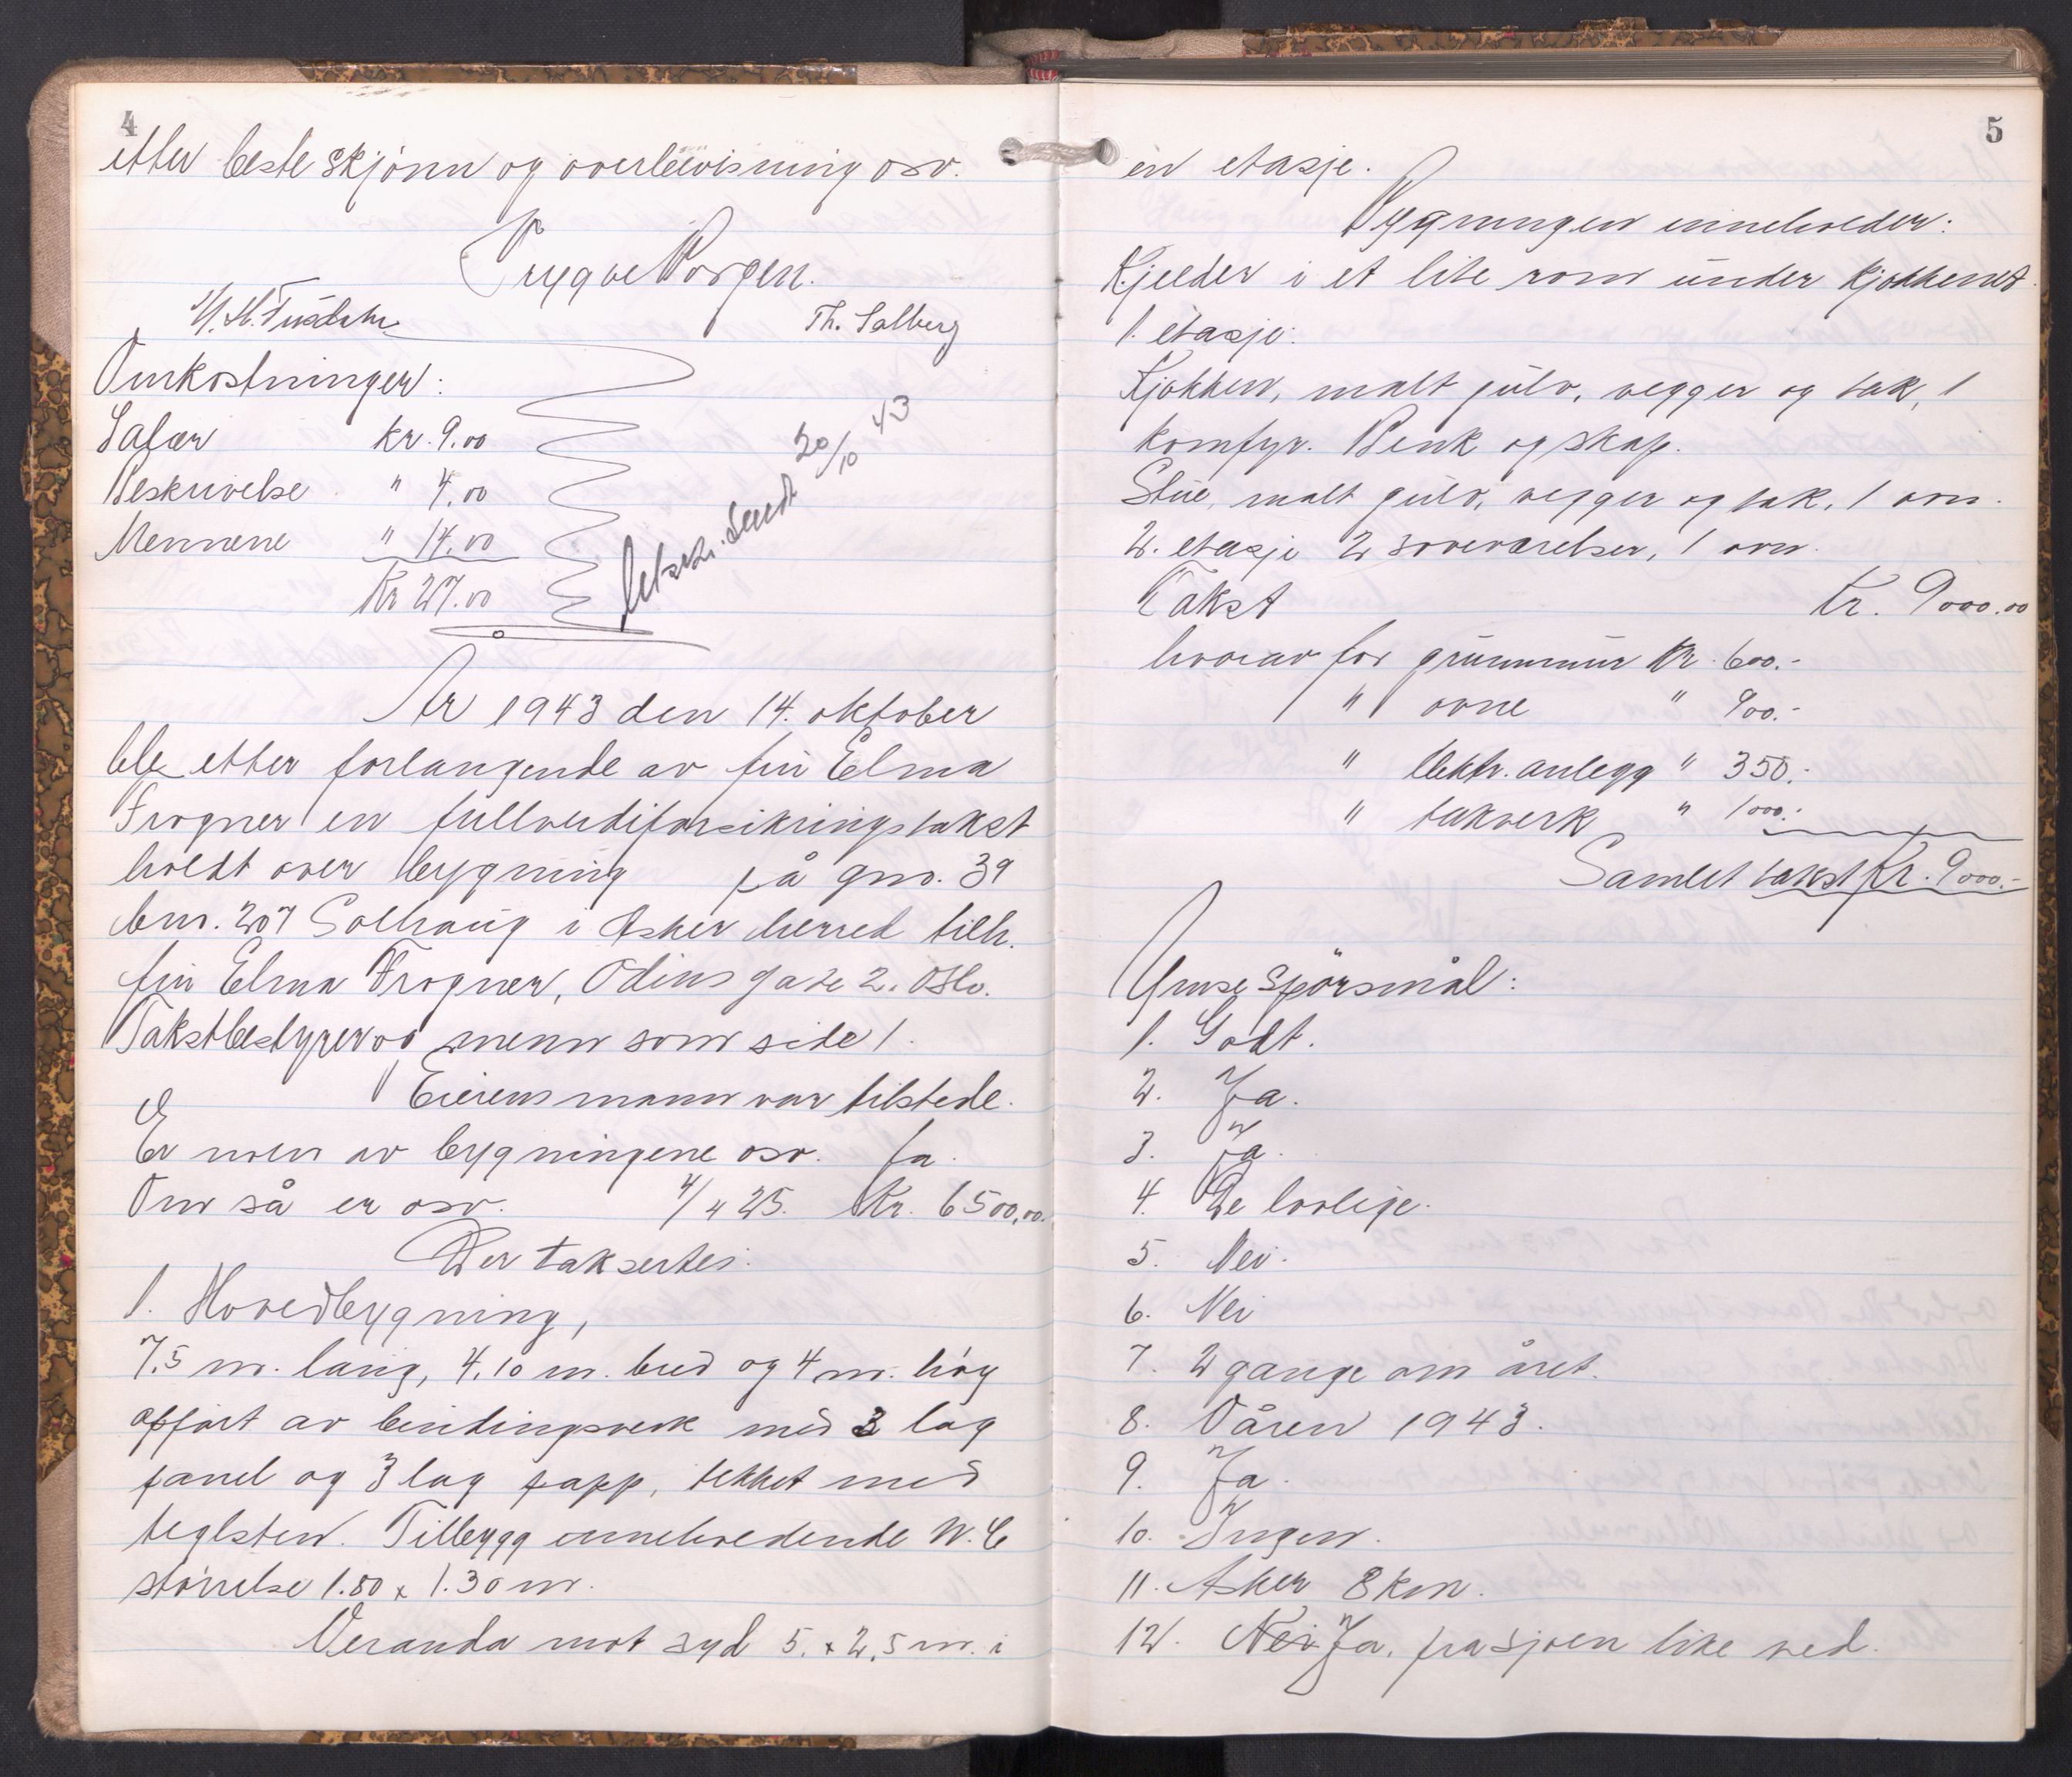 4
etter beste skjønn og overbevisning osv.
Trygve Borgen.
Th. Solberg
Omkostninger:
Salær kr. 9.00
Beskrivelse " 4.00
Mennene " 14.00
Kr 27.00
Utskr. sendt 20/10 43
År 1943 den 14. oktober
ble etter forlangende av fru Elma
Frogner en fullverdiforsikringstakst
holdt over bygning på gno. 39
bnr. 207 Solhaug i Asker herred tilh.
fru Elma Frogner, Odins gate 2. Oslo.
Takstbestyrer og menn som side 1.
Eierens mann var tilstede.
Er noen av bygningene osv. Ja.
Om så er osv. 4/4 25. Kr. 6500.00.
Der taksertes:
1. Hovedbygning,
7.5 m. lang, 4.10 m. bred og 4 m. høy
oppført av bindingsverk med 3 lag
panel og 3 lag papp, tekket med
teglsten. Tilbygg inneholdende W.C
størrelse 1.80 x 1.30 m.
Veranda mot syd 5. x 2.5 m. i
5
en etasje.
Bygningen inneholder:
Kjelder i et lite rom under kjøkkenet.
1. etasje:
Kjøkken, malt gulv, vegger og tak, 1
komfyr. Benk og skap.
Stue, malt gulv, vegger og tak, 1 ovn.
2. etasje 2 soveværelser, 1 ovn.
Takst Kr. 9000.00
hvorav for grunnmur kr. 600.-
" " ovne " 900.-
" elektr. anlegg " 350.-
" takverk " 1000.-
Samlet takst Kr. 9000.-
Ymse spørsmål:
1. Godt.
2. Ja.
3. Ja.
4. De lovlige.
5. Nei.
6. Nei
7. 2 gange om året.
8. Våren 1943.
9. Ja.
10. Ingen.
11. Asker 8 km.
12. Nei Ja, fra sjøen like ved.